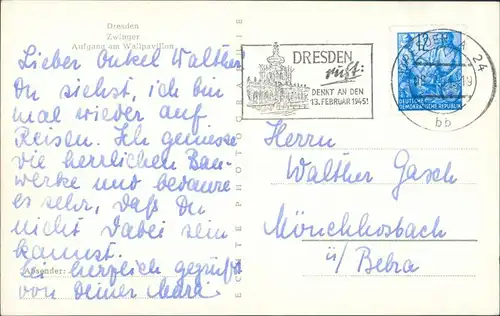 Dresden
Zwinger
Aufgang am Wallpavillon
Lieber Onkel Walther
Du siehst, ich bin
mal wieder auf
Reisen. Ich geniesse
die herrlichen Bau-
werke und bedaure
es sehr, daß Du
nicht dabei sein
kannst.
Absender:
herzlich gegrüßt
von Deiner
ECHTE PHOTOGRAPHIE
DRESDEN
ruft:
DENKT AN DEN
13. FEBRUAR 1945!
24
bb
DEUTSCHE
DEMOKRATISCHE REPUBLIK
Herrn
Walther Gasch
Mönchhosbach
ü/ Bebra